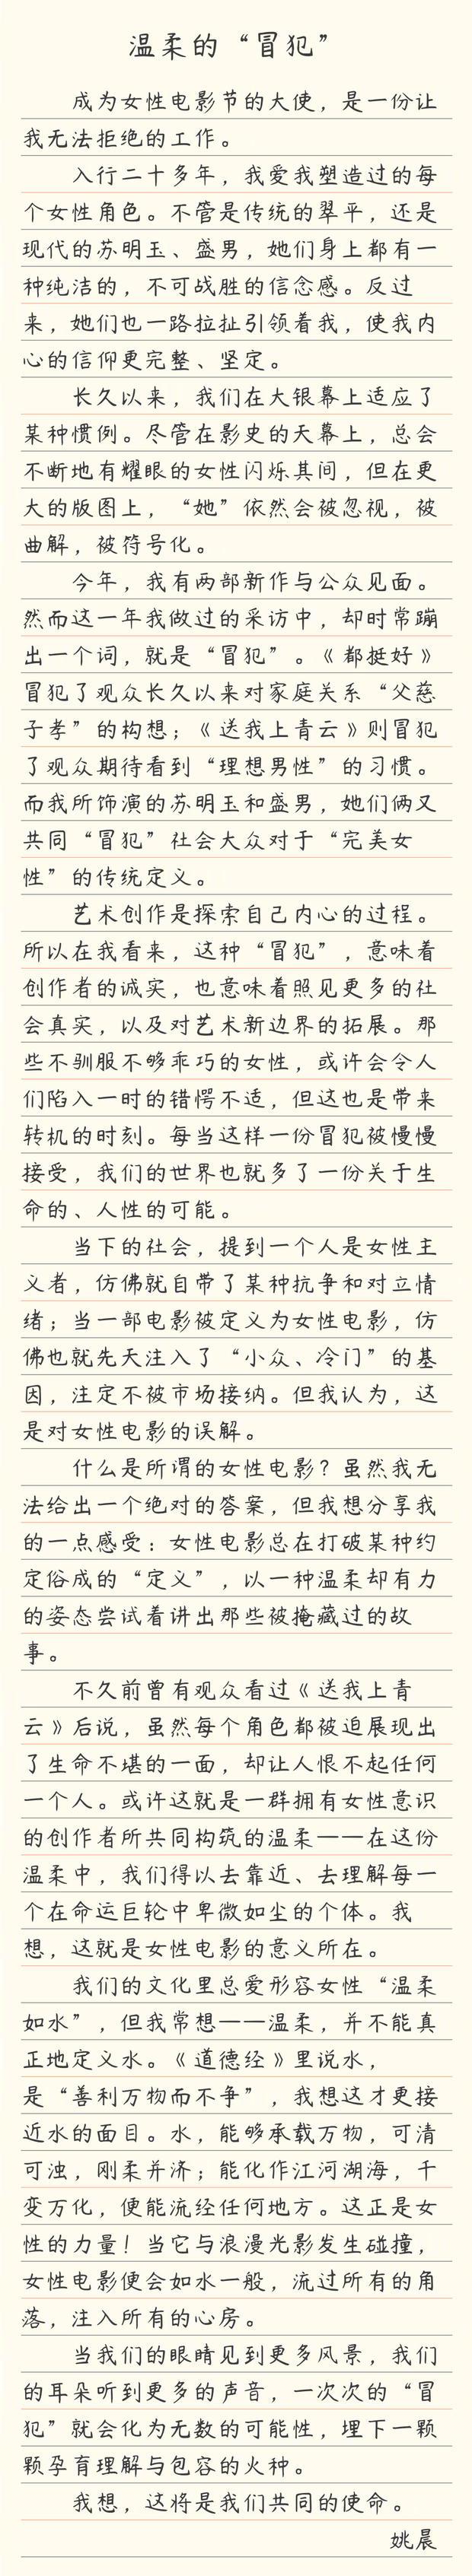 温柔的“冒犯”
成为女性电影节的大使，是一份让
我无法拒绝的工作。
入行二十多年，我爱我塑造过的每
个女性角色。不管是传统的翠平，还是
现代的苏明玉、盛男，她们身上都有一
种纯洁的，不可战胜的信念感。反过
来，她们也一路拉扯引领着我，使我内
心的信仰更完整、坚定。
长久以来，我们在大银幕上适应了
某种惯例。尽管在影史的天幕上，总会
不断地有耀眼的女性闪烁其间，但在更
大的版图上，“她”依然会被忽视，被
曲解，被符号化。
今年，我有两部新作与公众见面。
然而这一年我做过的采访中，却时常蹦
出一个词，就是“冒犯”。《都挺好》
冒犯了观众长久以来对家庭关系“父慈
子孝”的构想；《送我上青云》则冒犯
了观众期待看到“理想男性”的习惯。
而我所饰演的苏明玉和盛男，她们俩又
共同“冒犯”社会大众对于“完美女
性”的传统定义。
艺术创作是探索自己内心的过程。
所以在我看来，这种“冒犯”，意味着
创作者的诚实，也意味着照见更多的社
会真实，以及对艺术新边界的拓展。那
些不驯服不够乖巧的女性，或许会令人
们陷入一时的错愕不适，但这也是带来
转机的时刻。每当这样一份冒犯被慢慢
接受，我们的世界也就多了一份关于生
命的、人性的可能。
当下的社会，提到一个人是女性主
义者，仿佛就自带了某种抗争和对立情
绪；当一部电影被定义为女性电影，仿
佛也就先天注入了“小众、冷门”的基
因，注定不被市场接纳。但我认为，这
是对女性电影的误解。
什么是所谓的女性电影？虽然我无
法给出一个绝对的答案，但我想分享我
的一点感受：女性电影总在打破某种约
定俗成的“定义”，以一种温柔却有力
的姿态尝试着讲出那些被掩藏过的故
事。
不久前曾有观众看过《送我上青
云》后说，虽然每个角色都被迫展现出
了生命不堪的一面，却让人恨不起任何
一个人。或许这就是一群拥有女性意识
的创作者所共同构筑的温柔——在这份
温柔中，我们得以去靠近、去理解每一
个在命运巨轮中卑微如尘的个体。我
想，这就是女性电影的意义所在。
我们的文化里总爱形容女性“温柔
如水”，但我常想——温柔，并不能真
正地定义水。《道德经》里说水，
是“善利万物而不争”，我想这才更接
近水的面目。水，能够承载万物，可清
可浊，刚柔并济；能化作江河湖海，千
变万化，便能流经任何地方。这正是女
性的力量！当它与浪漫光影发生碰撞，
女性电影便会如水一般，流过所有的角
落，注入所有的心房。
当我们的眼睛见到更多风景，我们
的耳朵听到更多的声音，一次次的“冒
犯”就会化为无数的可能性，埋下一颗
颗孕育理解与包容的火种。
我想，这将是我们共同的使命。
姚晨